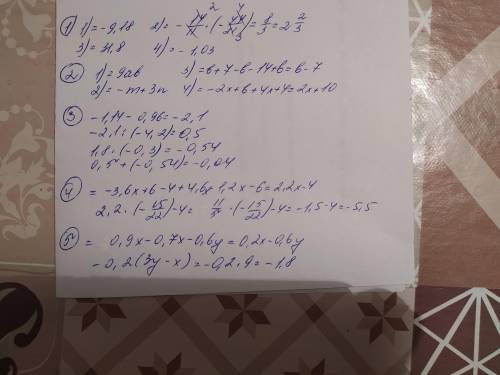 ① 1) = -9,18 2) = - 14/11 · (- 44/21) = 8/3 = 2 2/3
3) = 31,8 4) = -1,03
② 1) = 9ab 3) = b+7-b-14+b = b-7
2) = -m+3n 4) = -2x+6+4x+4 = 2x+10
③ -1,14-0,96 = -2,1
-2,1 : (-4,2) = 0,5
1,8 · (-0,3) = -0,54
0,5+(-0,54) = -0,04
④ = -3,6x+6-4+4,6x+1,2x-6 = 2,2x-4
2,2 · (- 15/22) -4 = 11/5 · (- 15/22) -4 = -1,5-4 = -5,5
⑤ = 0,9x-0,7x-0,6y = 0,2x-0,6y
-0,2(3y-x) = -0,2·9 = -1,8